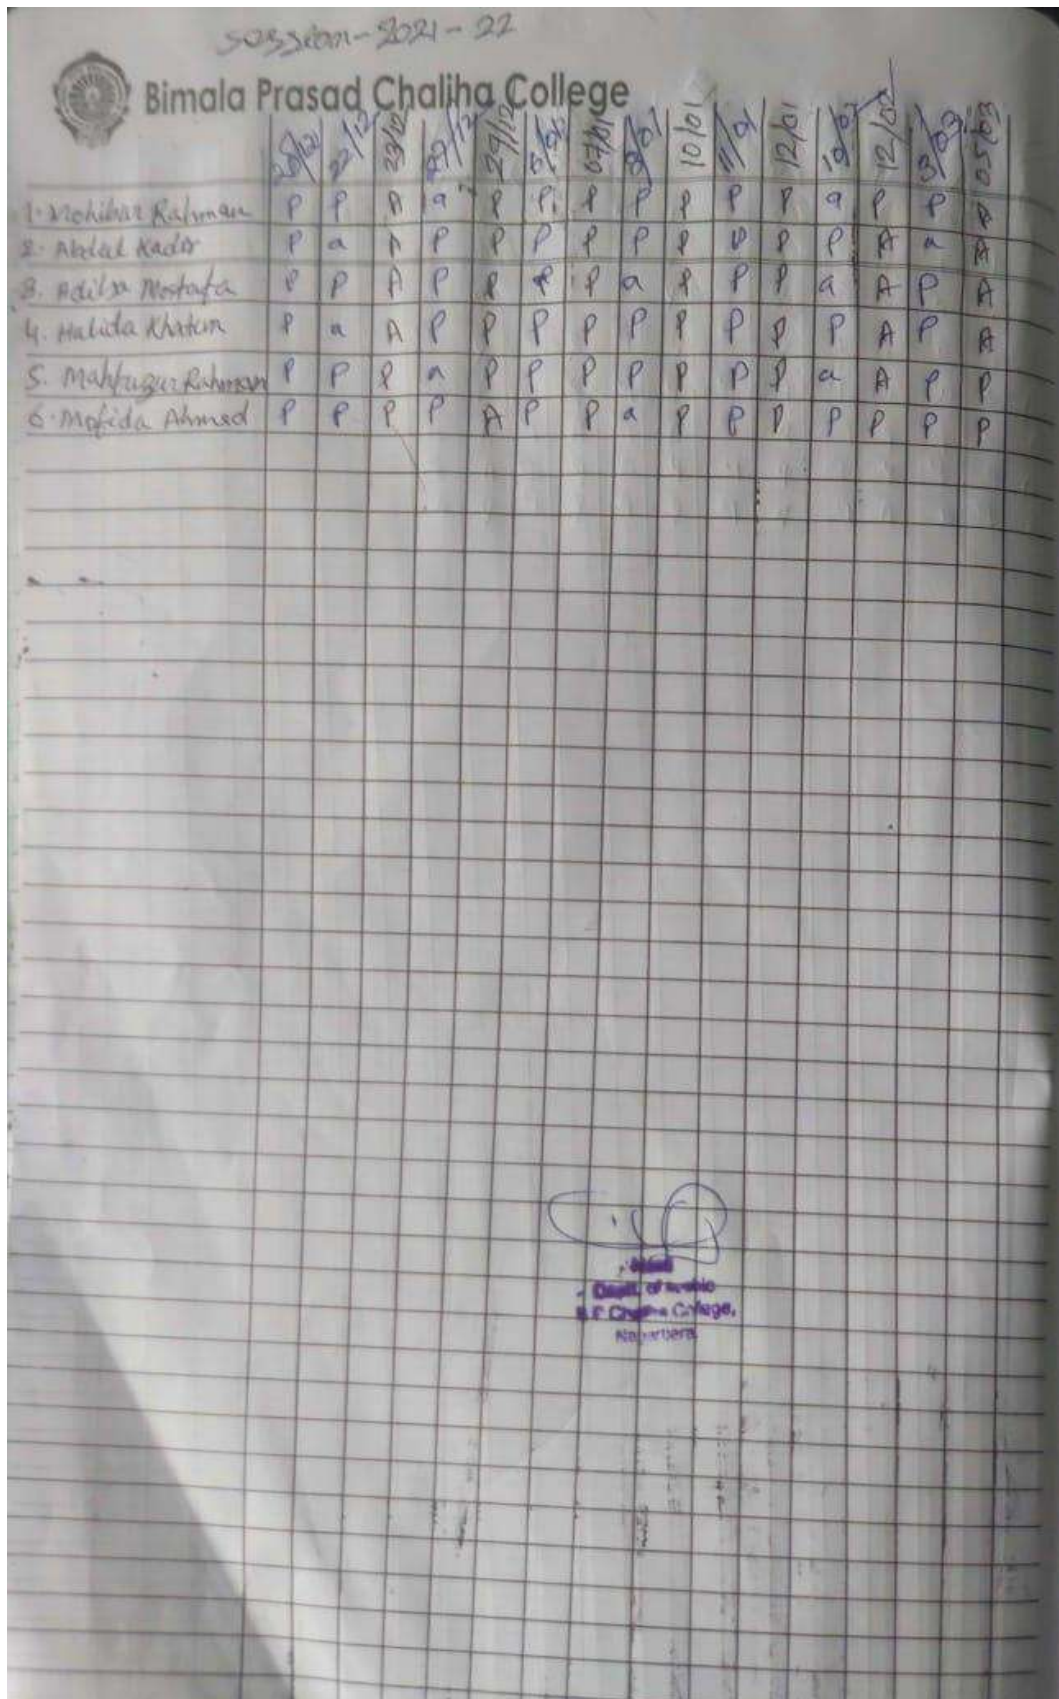 Session-2021-22
Bimala Prasad Chaliha College
20/12 22/12 23/12 27/12 29/12 07/01 10/01 11/01 12/01 12/02 3/03 05/03
1. Mohibar Rahman P P A a P P P P P P P a P P A
2. Abdul Kadir P a A P P P P P P P P P A a A
3. Adilja Mostafa P P A P P P P a P P P a A P A
4. Halida Khatun P a A P P P P P P P P P A P A
5. Mahfuzur Rahman P P P a P P P P P P P a A P P
6. Mofida Ahmed P P P P A P P a P P P P P P P
Head
Deptt. of Arabic
B.P. Chaliha College,
Nagarbera